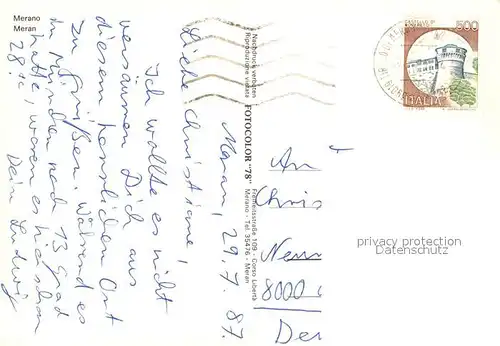 Merano
Meran
Meran, 29.7.87.
Liebe Christiane,
Ich wollte es nicht
versäumen Dich aus
diesem herrlichen Ort
zu grüßen. Während es
in München noch 13 Grad
hatte, waren es hier schon
28°C
Dein Ludwig
Nachdruck verboten
Riproduzione vietata
FOTOCOLOR "78"
Freiheitsstraße 109 - Corso Libertà
Merano - Tel. 35476 - Meran
500
ITALIA
An
Chris
8000
Der
privacy protection
Datenschutz